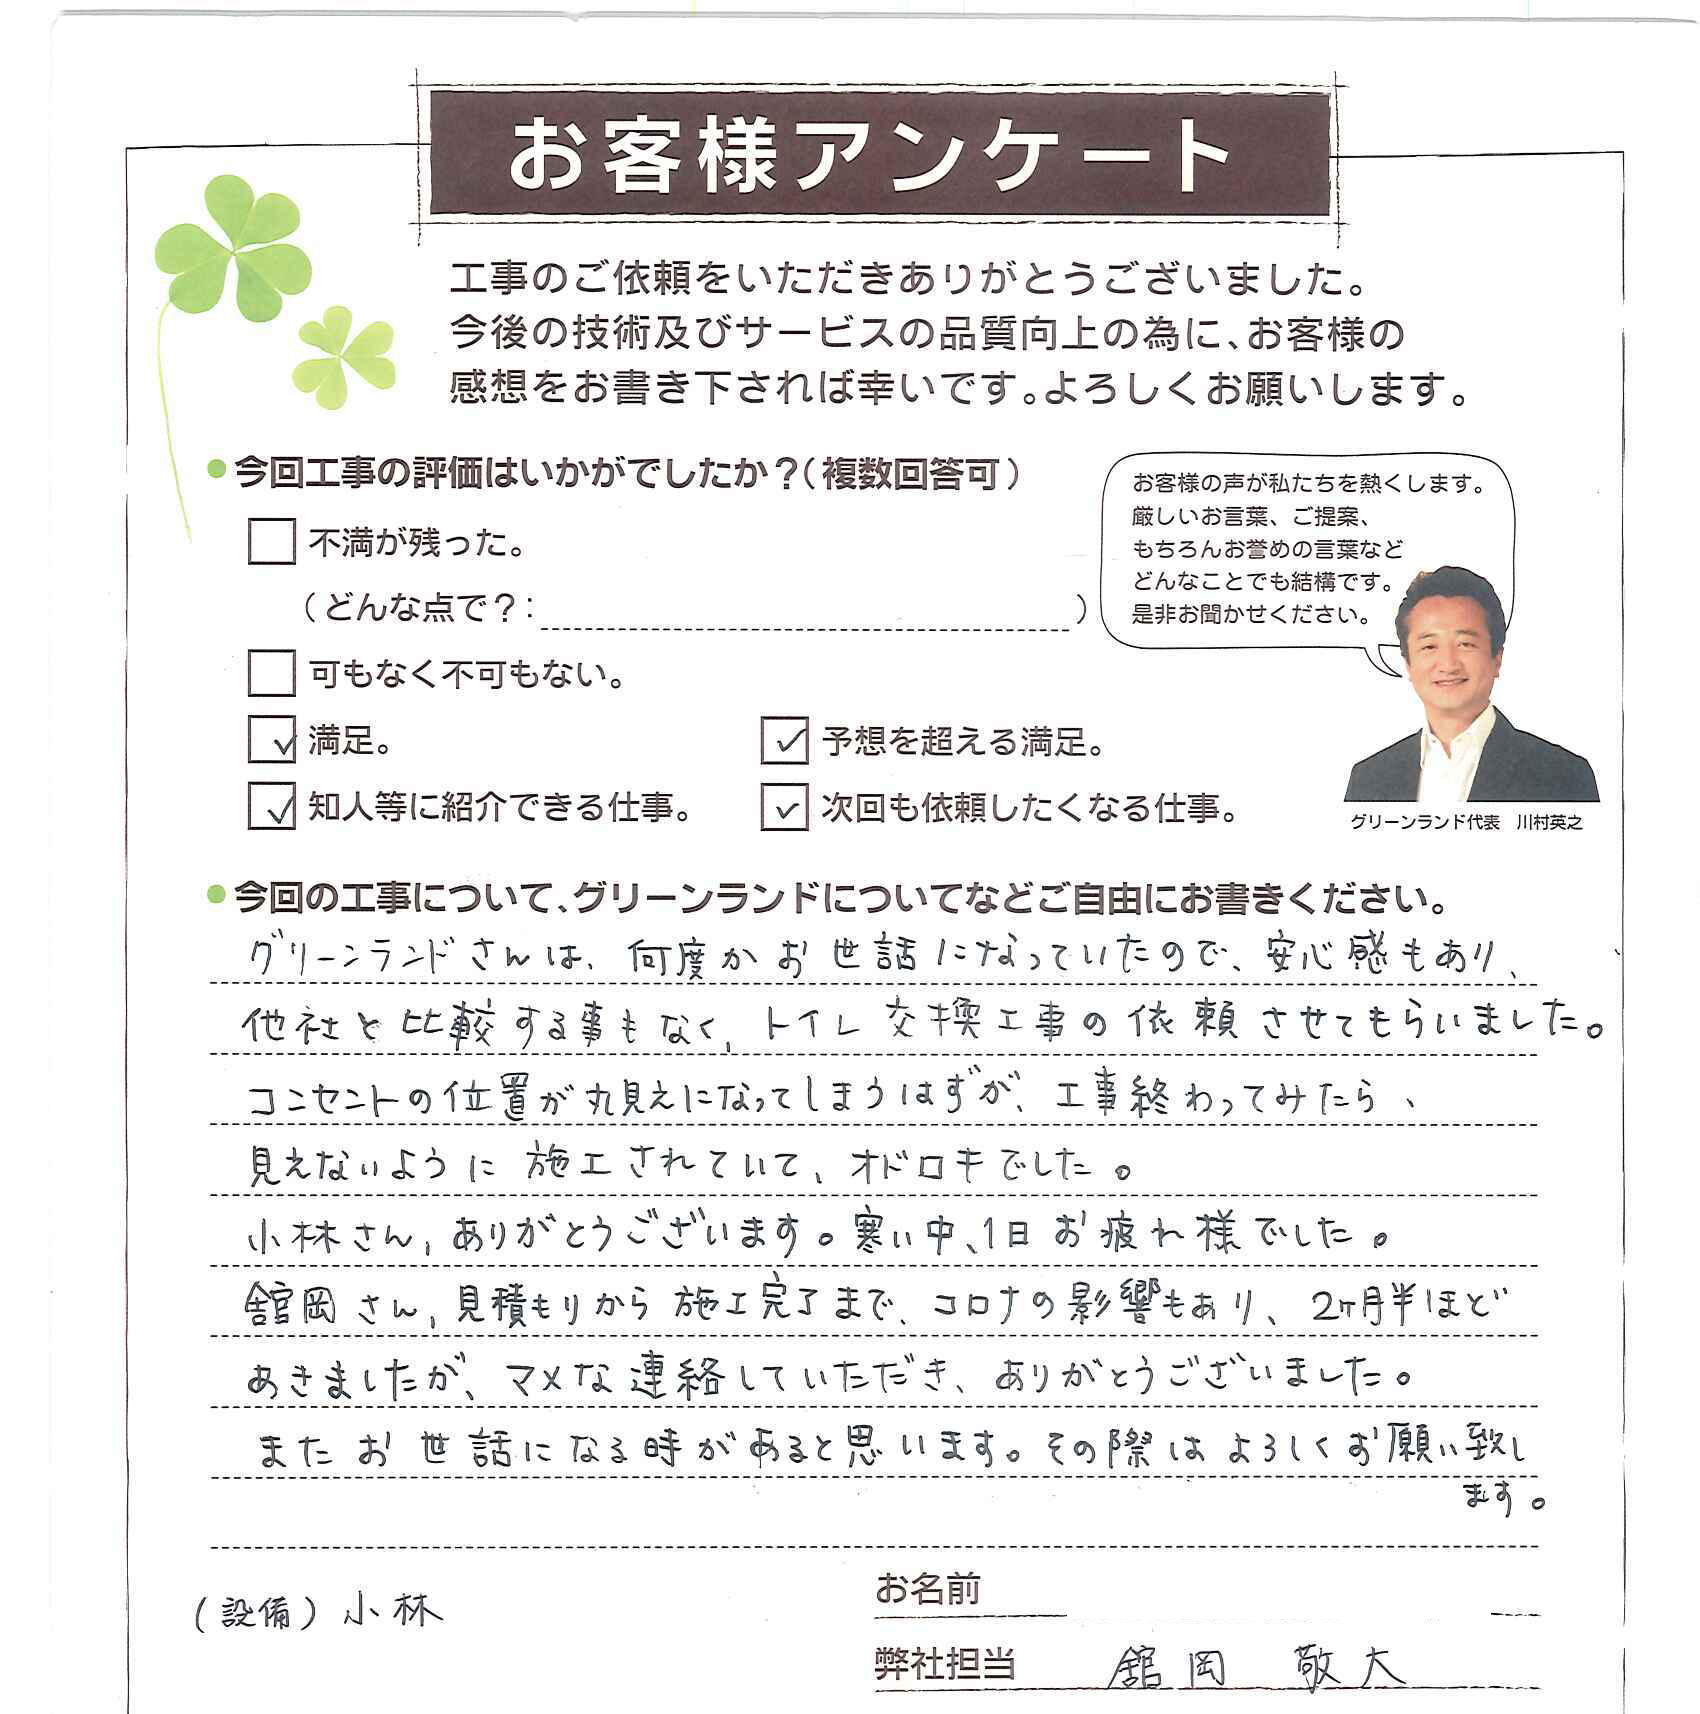 お客様アンケート
工事のご依頼をいただきありがとうございました。
今後の技術及びサービスの品質向上の為に、お客様の
感想をお書き下されば幸いです。よろしくお願いします。
●今回工事の評価はいかがでしたか？（複数回答可）
不満が残った。
（どんな点で？： ）
可もなく不可もない。
満足。
予想を超える満足。
知人等に紹介できる仕事。
次回も依頼したくなる仕事。
お客様の声が私たちを熱くします。
厳しいお言葉、ご提案、
もちろんお誉めの言葉など
どんなことでも結構です。
是非お聞かせください。
グリーンランド代表　川村英之
●今回の工事について、グリーンランドについてなどご自由にお書きください。
グリーンランドさんは、何度かお世話になっていたので、安心感もあり、
他社と比較する事もなく、トイレ交換工事の依頼させてもらいました。
コンセントの位置が丸見えになってしまうはずが、工事終わってみたら、
見えないように施工されていて、オドロキでした。
小林さん、ありがとうございます。寒い中、1日お疲れ様でした。
舘岡さん、見積もりから施工完了まで、コロナの影響もあり、2ヶ月半ほど
あきましたが、マメな連絡していただき、ありがとうございました。
またお世話になる時があると思います。その際はよろしくお願い致し
ます。
（設備）小林
お名前
弊社担当　舘岡　敬大